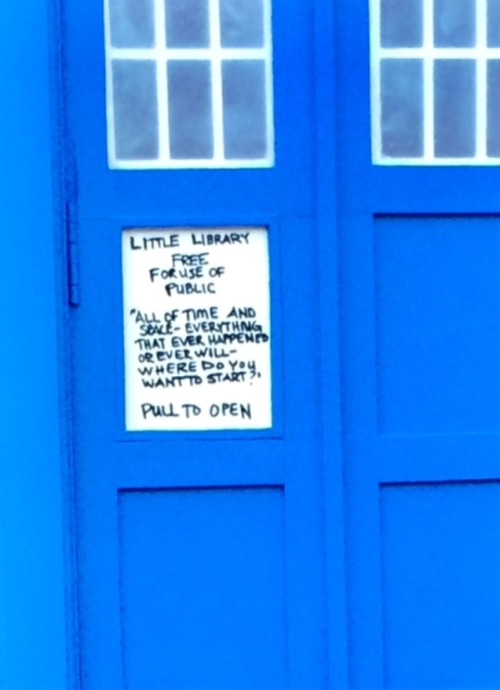 LITTLE LIBRARY
FREE
FOR USE OF
PUBLIC
"ALL OF TIME AND
SPACE - EVERYTHING
THAT EVER HAPPENED
OR EVER WILL -
WHERE DO YOU
WANT TO START?"
PULL TO OPEN